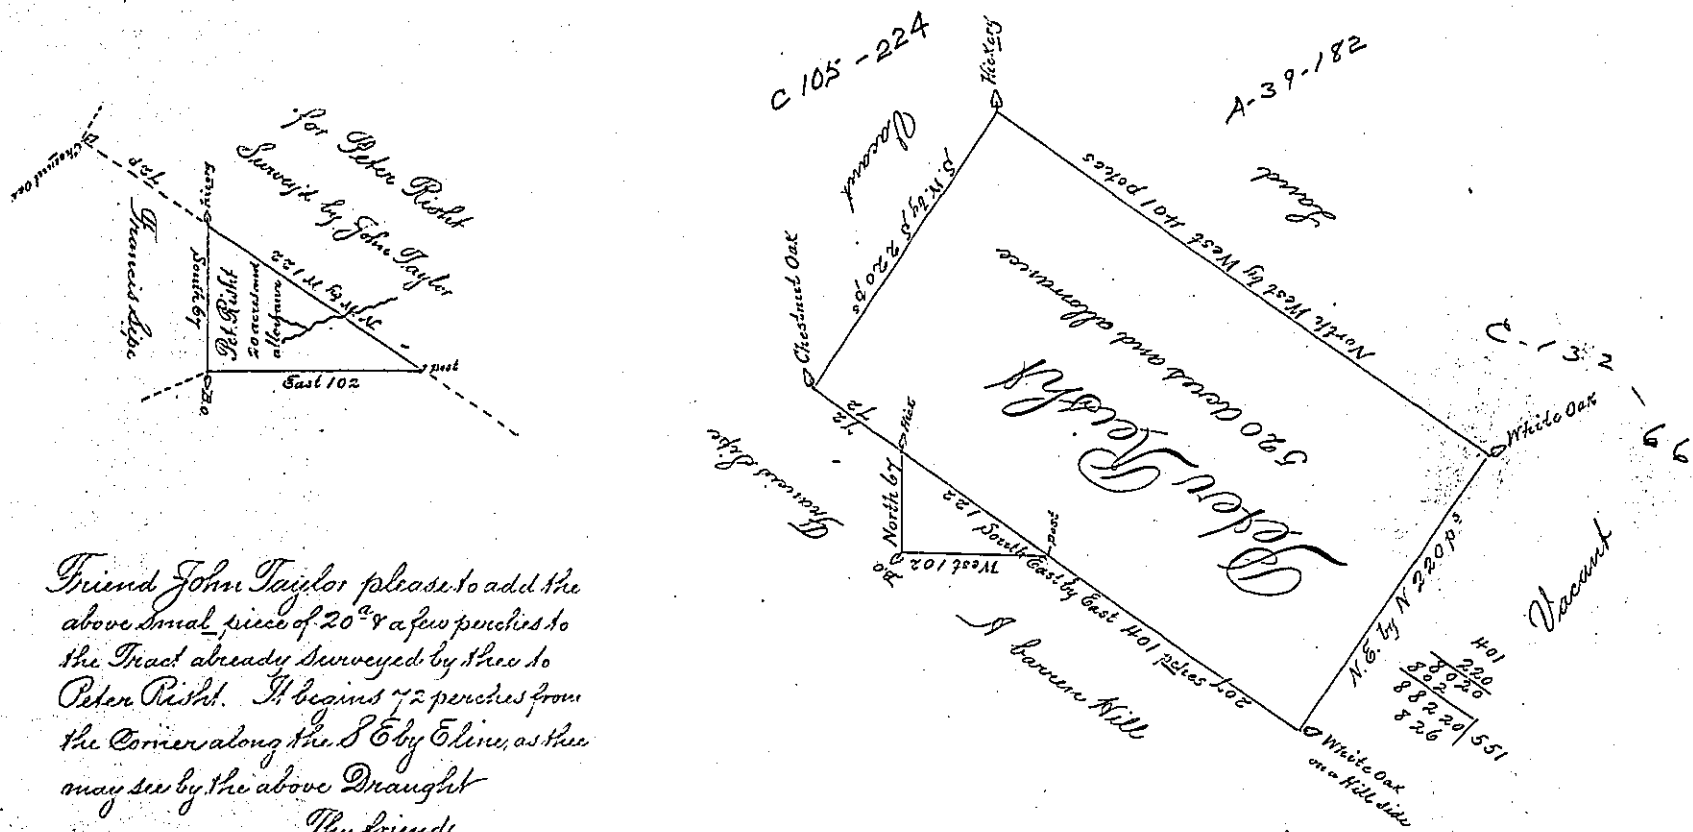 for Peter Risht
Survey'd by John Taylor
Chesnut Oak
72 p
Hickry
Francis Sipe
South 67
Pet. Risht
20 acres and
allowance
N.W. by W 122
post
East 102
B.O
Friend John Taylor please to add the
above Smal piece of 20ª & a few perches to
the Tract already Surveyed by thee to
Peter Risht. It begins 72 perches from
the Corner along the S E by E line, as thee
may see by the above Draught
Thy friend
C 105-224
Hickery
A-39-182
Vacant
Land
S.W. by S 220 ps
North West by West 401 poles
Chestnut Oak
520 acres and allowance
Peter Reisht
C-132-66
White Oak
72
72
Hick
Francis Sipe
North 67
122
post
B.O
West 102
South East by East 401 pches
207
N.E. by N 220 ps
Vacant
A barren Hill
White Oak
on a Hill side
401
220
8020
802
88220/551
826